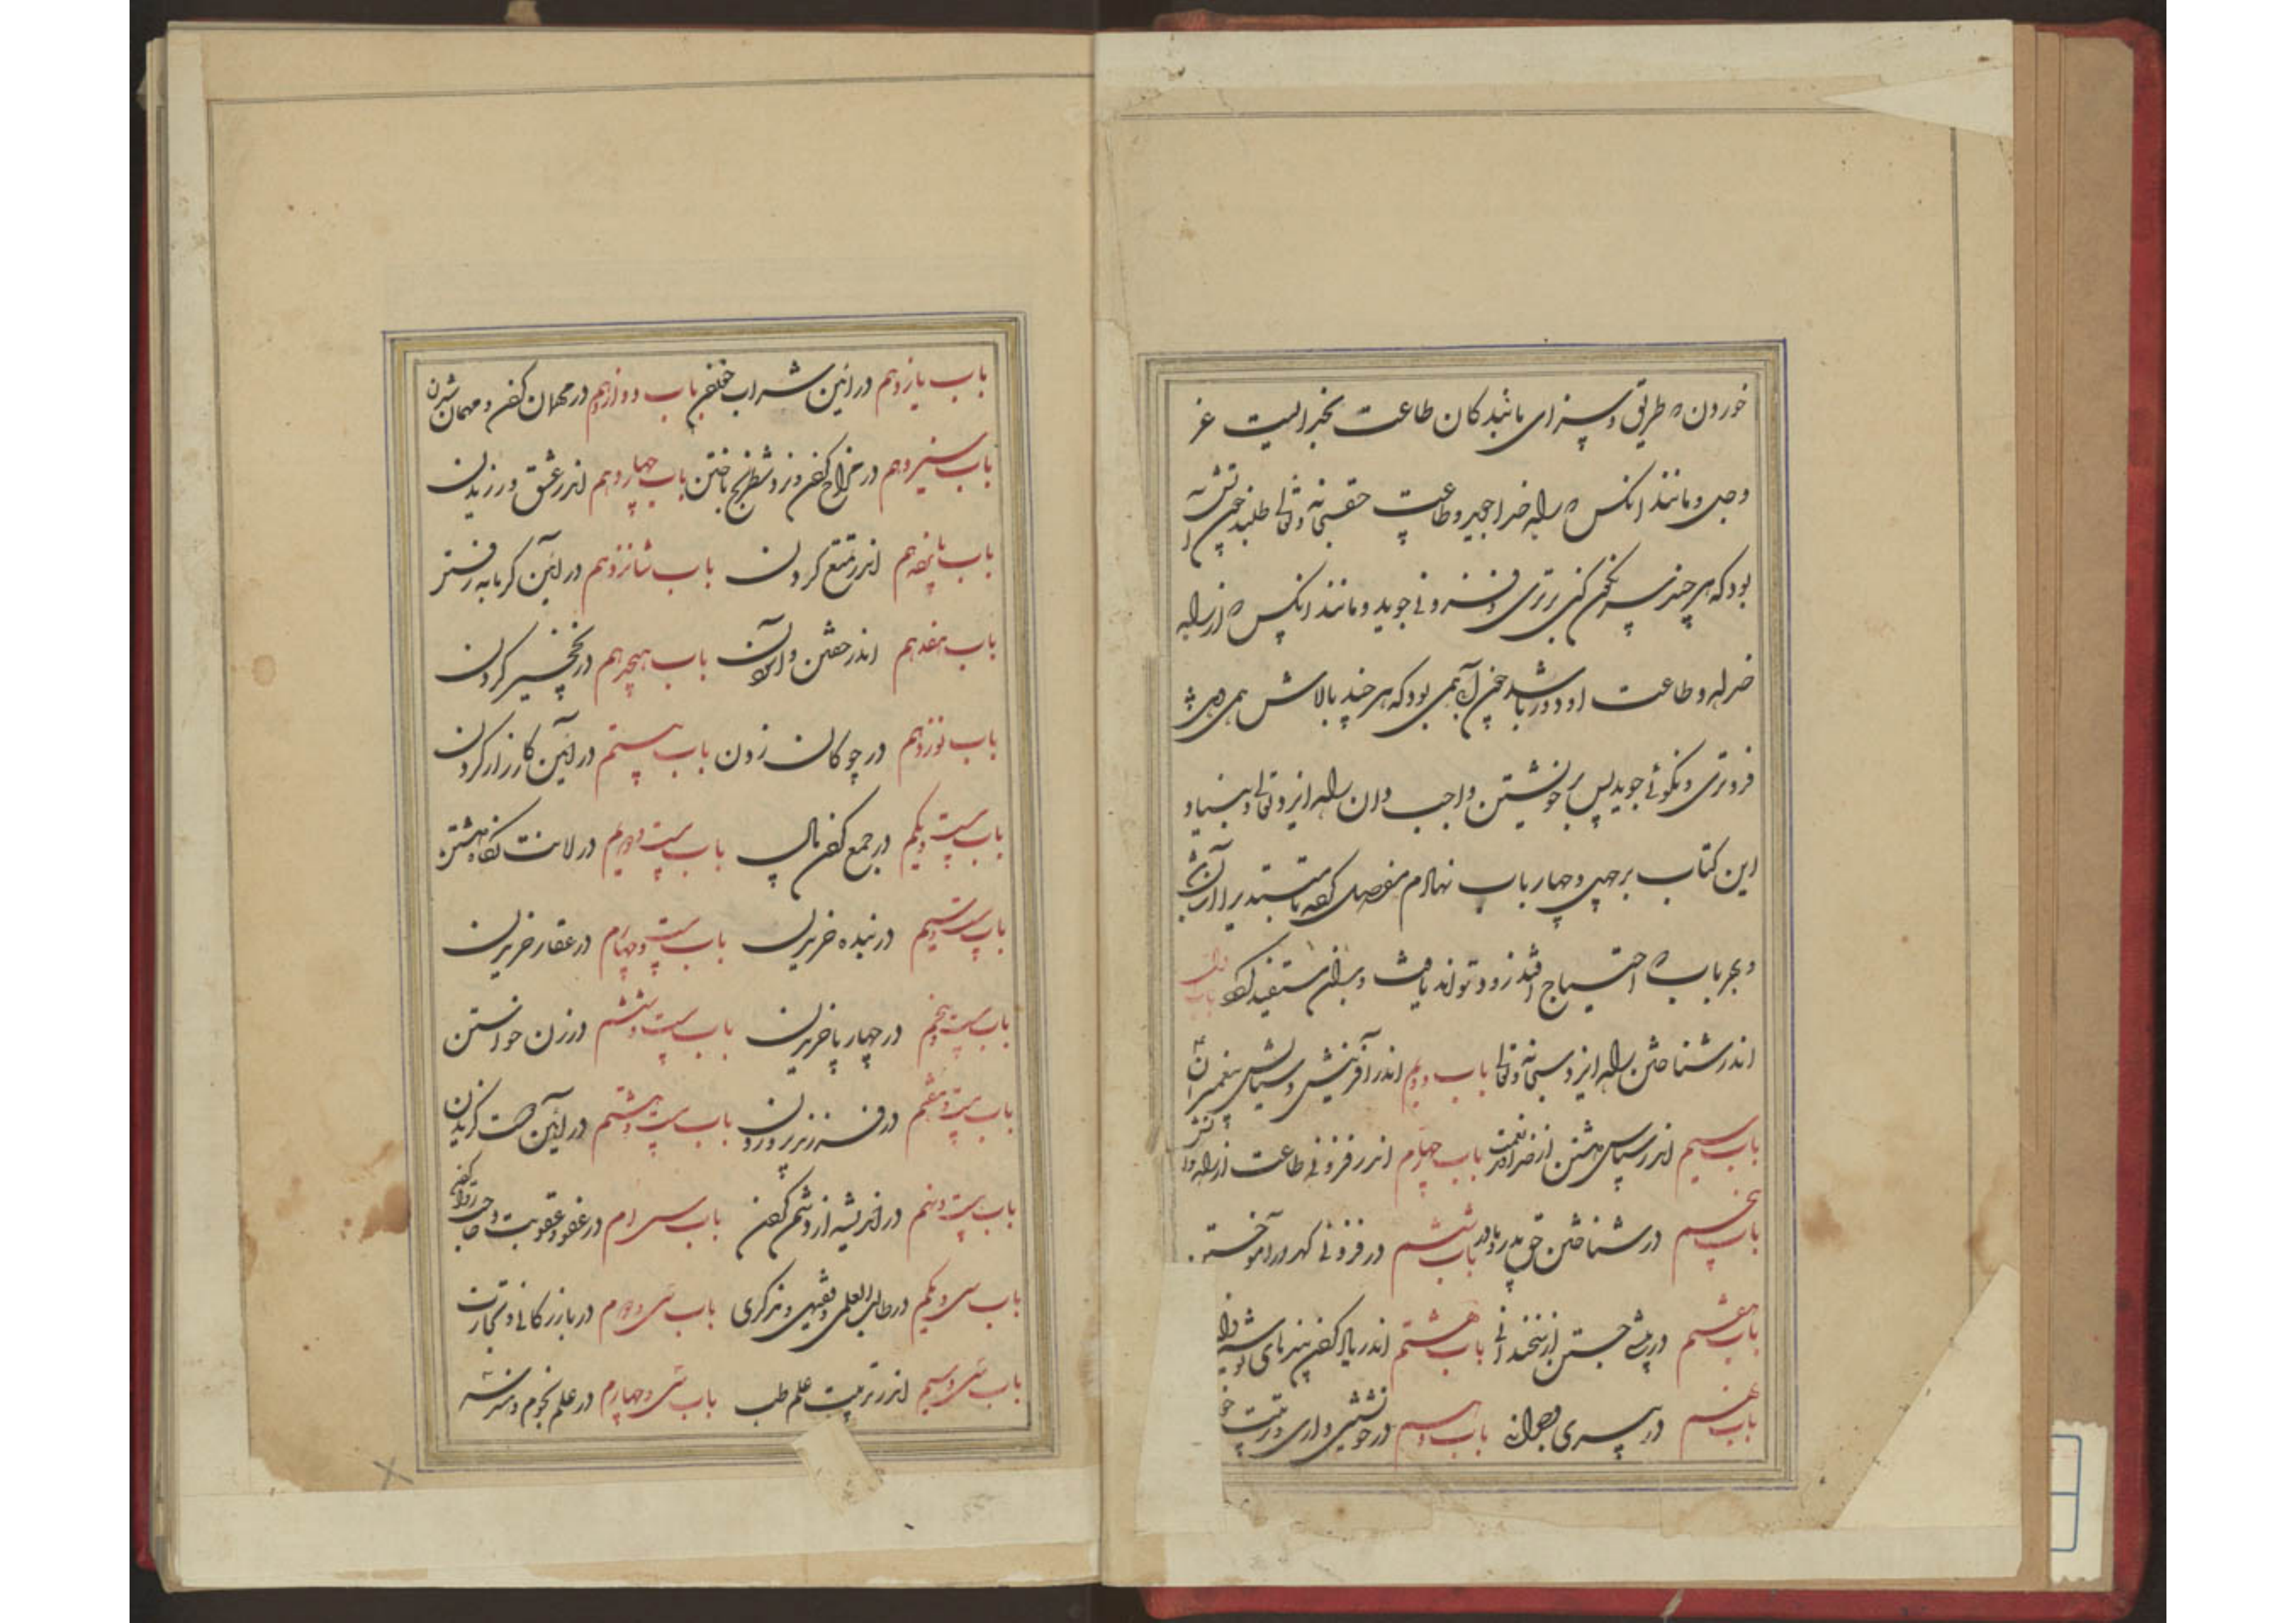 خوردن و طریق و سزای مانندکان طاعت بخبر الیت عز
وجل و مانند انکس که راه خدا جوید و طاعت حق سبحانه و تعالی طلبد چون آتش
بود که هر چند سرنکون کنی برتری و فزونی جوید و مانند انکس که از راه
خدا و طاعت او دور باشد چون آبی بود که هر چند بالاش همی دهی
فروتری و نکونی جوید پس بر خویشتن واجب دان راه ایزد تعالی و بنیاد
این کتاب بر چهل و چهار باب نهادم مفصل کرده
و بهر باب که احتیاج افتد زود تواند یافت و بدان مستفید کردد باب اول
اندر شناختن راه ایزد سبحانه و تعالی باب دویم اندر آفرینش و ستایش پیغمبران
باب سیم اندر سپاس داشتن از خداوند نعمت باب چهارم اندر فزونی طاعت از راه
باب پنجم در شناختن حق پدر و مادر باب ششم در فزونی کهر در آموختن
باب هفتم در پیشی جستن از سخندانی باب هشتم اندر یاد کردن پندهای نوشیروان
باب نهم در پیری و جوانی باب دهم در خویشتن داری و ترتیب
باب یازدهم در آئین شراب خوردن باب دوازدهم در مهمان کردن و مهمان شدن
باب سیزدهم در مزاح کردن و نرد و شطرنج باختن باب چهاردهم اندر عشق ورزیدن
باب پانزدهم اندر تمتع کردن باب شانزدهم در آئین کرمابه رفتن
باب هفدهم اندر خفتن و آسودن باب هیجدهم در نخجیر کردن
باب نوزدهم در چوکان زدن باب بیستم در آئین کارزار کردن
باب بیست و یکم در جمع کردن مال باب بیست و دویم در امانت نکاه داشتن
باب بیست و سیم در بنده خریدن باب بیست و چهارم در عقار خریدن
باب بیست و پنجم در چهار پا خریدن باب بیست و ششم در زن خواستن
باب بیست و هفتم در فرزند پروردن باب بیست و هشتم در آئین دوست کزیدن
باب بیست و نهم در اندیشه از دشمن کردن باب سی ام در عفو و عقوبت و حاجت روا کردن
باب سی و یکم در طالب العلمی و فقیهی و مذکری باب سی و دویم در بازرکانی و تجارت
باب سی و سیم اندر ترتیب علم طب باب سی و چهارم در علم نجوم و هندسه